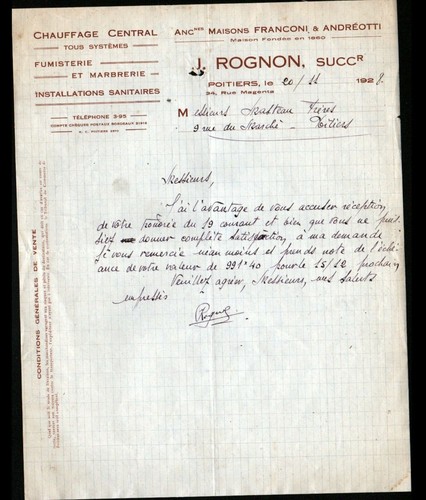 CHAUFFAGE CENTRAL
TOUS SYSTÈMES
FUMISTERIE
ET MARBRERIE
INSTALLATIONS SANITAIRES
TÉLÉPHONE 3-95
COMPTE CHÈQUES POSTAUX BORDEAUX
ANCNES MAISONS FRANCONI & ANDRÉOTTI
Maison Fondée en 1860
J. ROGNON, SUCCR
POITIERS, le 20/11 1928.
34, Rue Magenta
Messieurs Frères
9 rue du Marché - Poitiers
Messieurs,
J'ai l'avantage de vous accuser réception
de votre honorée du 19 courant et bien que vous ne puis-
siez donner complète satisfaction à ma demande
je vous remercie néanmoins et prends note de l'éché-
ance de votre valeur de 991.40 pour le 25/12 prochain
Veuillez agréer, Messieurs, mes saluts
empressés
Rognon
CONDITIONS GÉNÉRALES DE VENTE